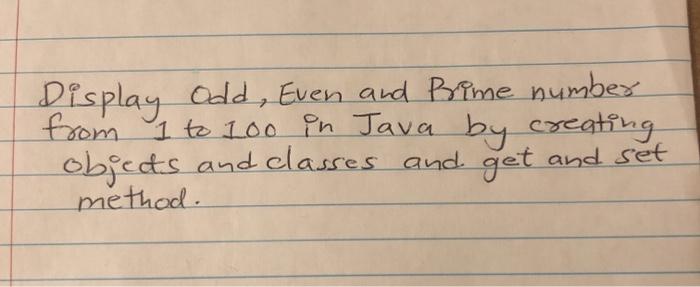 Display Odd, Even and Prime number
from 1 to 100 in Java by creating
objects and classes and get and set
method.